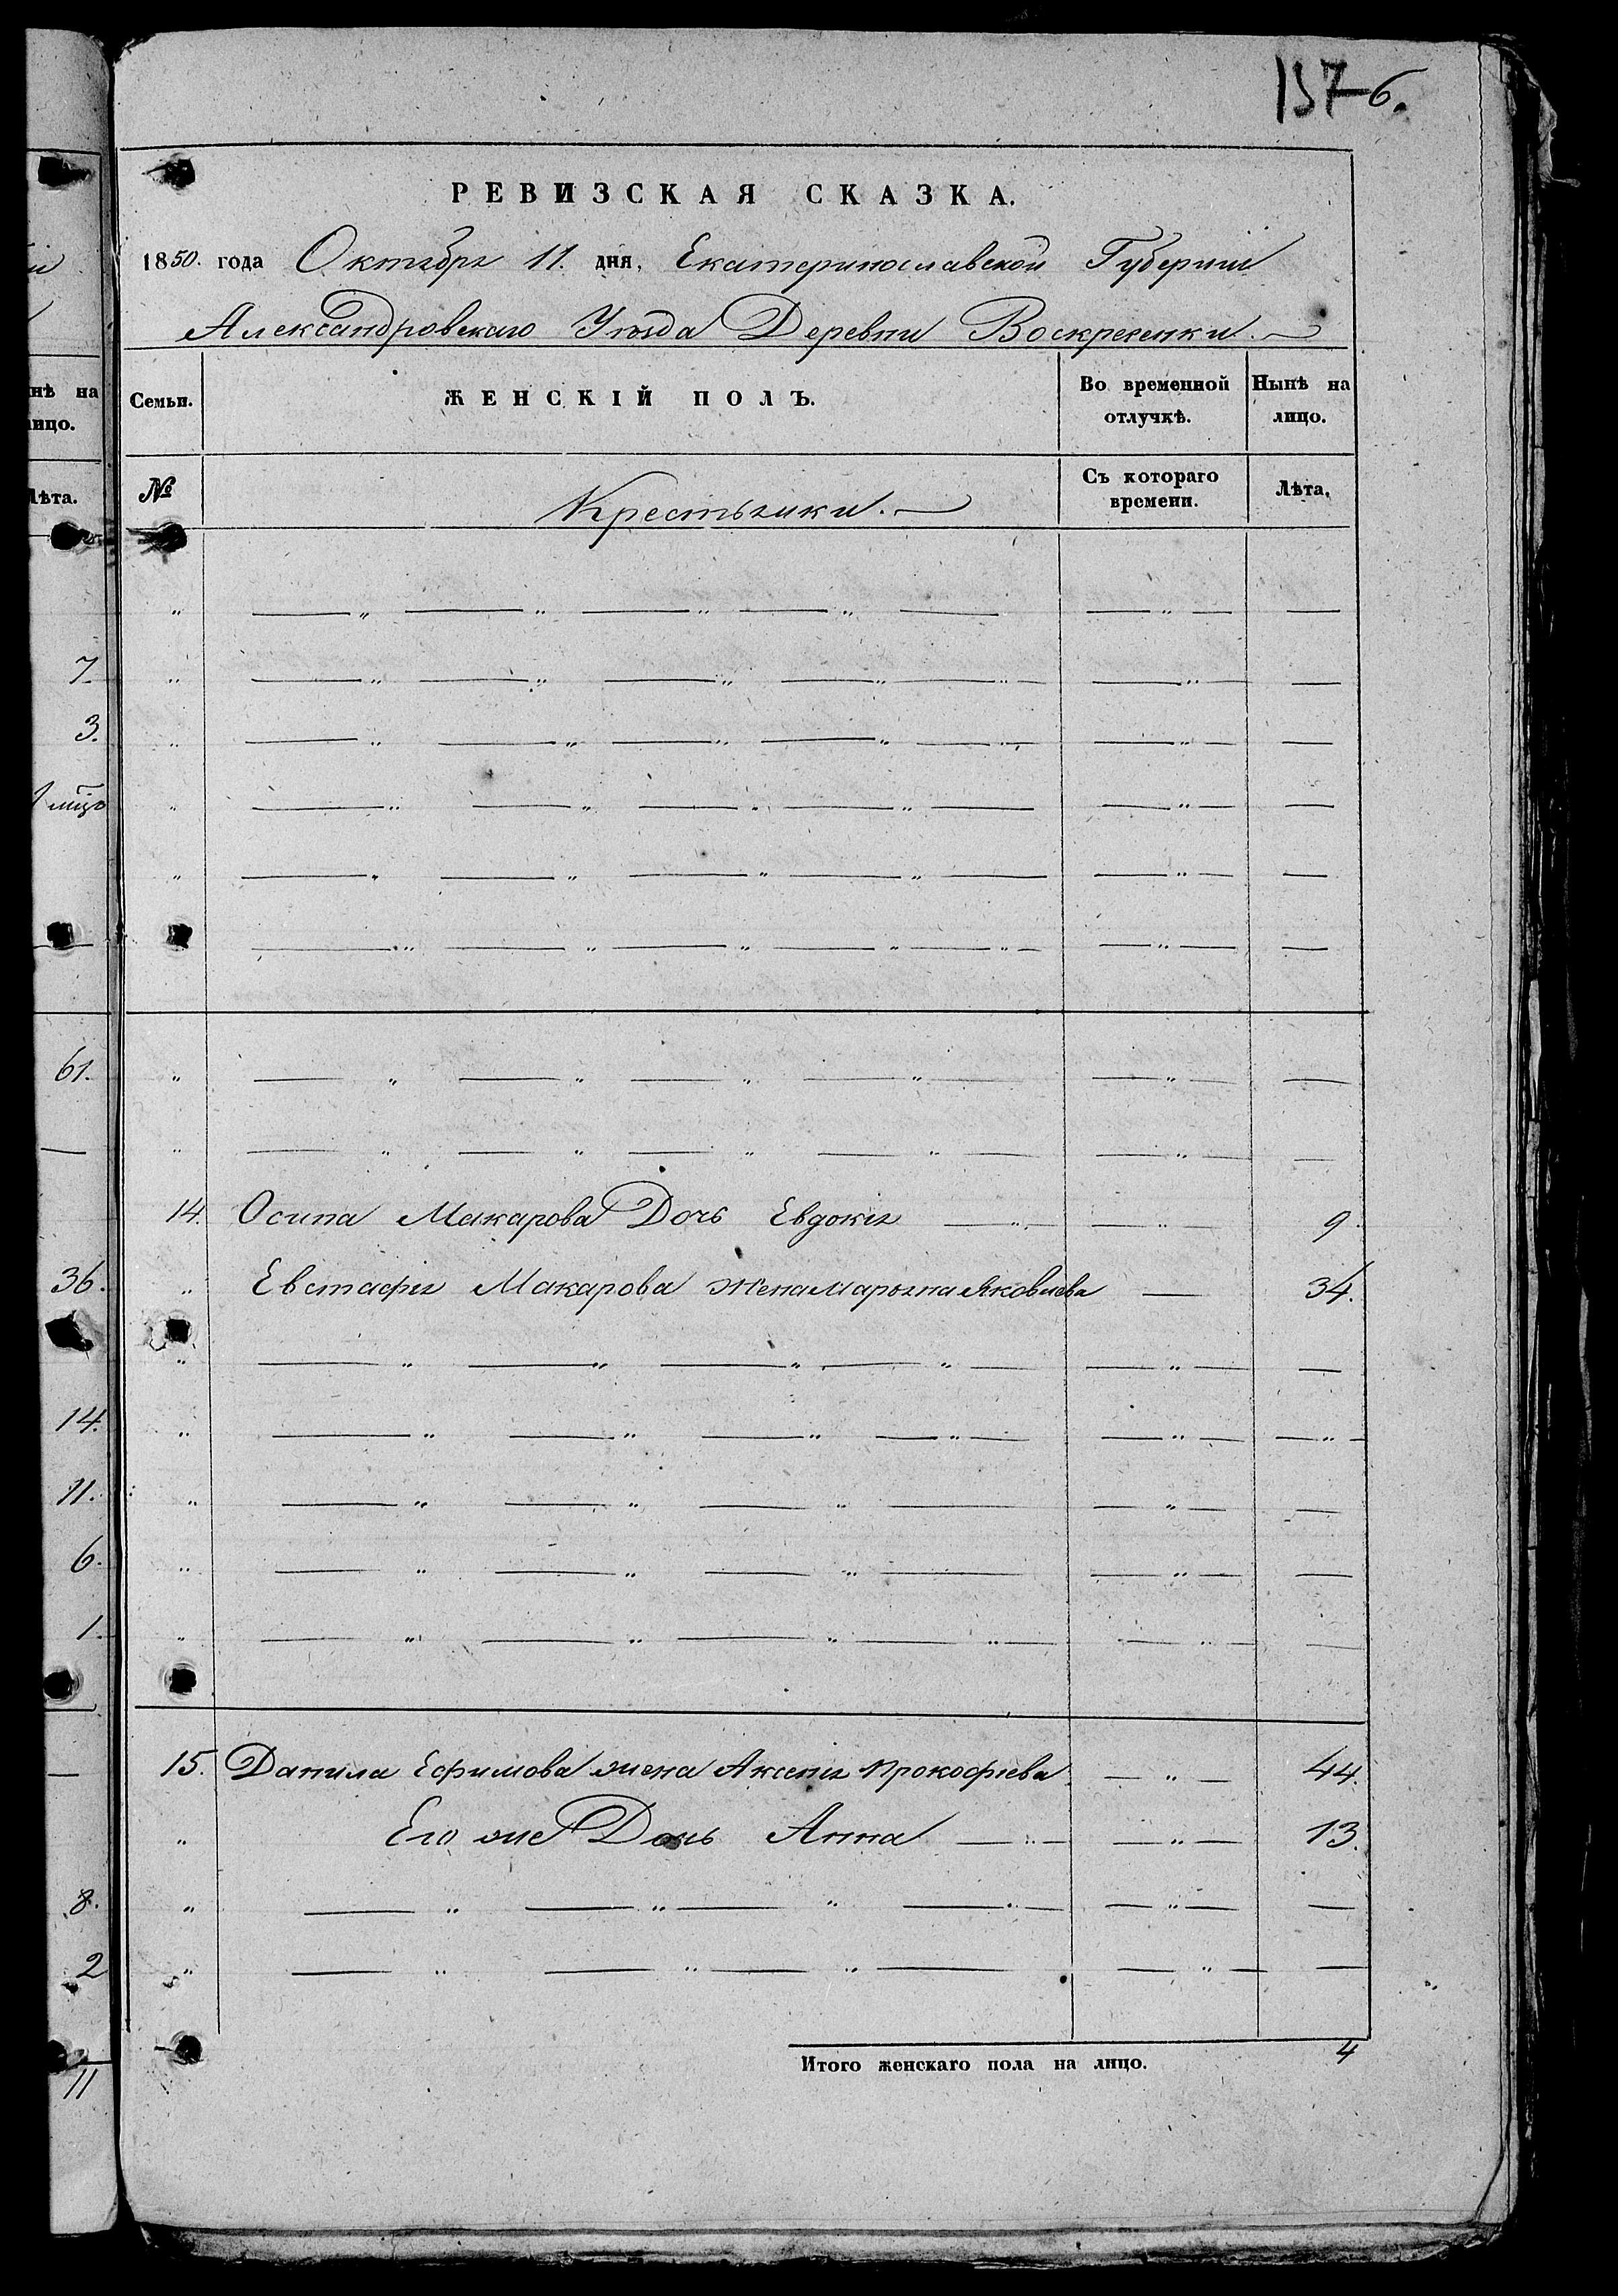 1376.
РЕВИЗСКАЯ СКАЗКА.
1850. года Октября 11. дня, Екатеринославской Губернии
Александровскаго Уѣзда Деревни Воскресенки.
Семьи.
ЖЕНСКІЙ ПОЛЪ.
Во временной отлучкѣ.
Нынѣ на лицо.
№
Крестьянки.
Съ котораго времени.
Лѣта.
нѣ на
лицо.
Лѣта.
7.
3.
лицо
61.
36.
14.
11.
6.
1.
8.
2
11
14. Осипа Макарова Дочь Евдокія 9.
Евстафія Макарова жена Марьяна Яковлева 34.
15. Данила Ефимова жена Аксенія Прокофіева 44.
Его же Дочь Анна 13.
Итого женскаго пола на лицо. 4